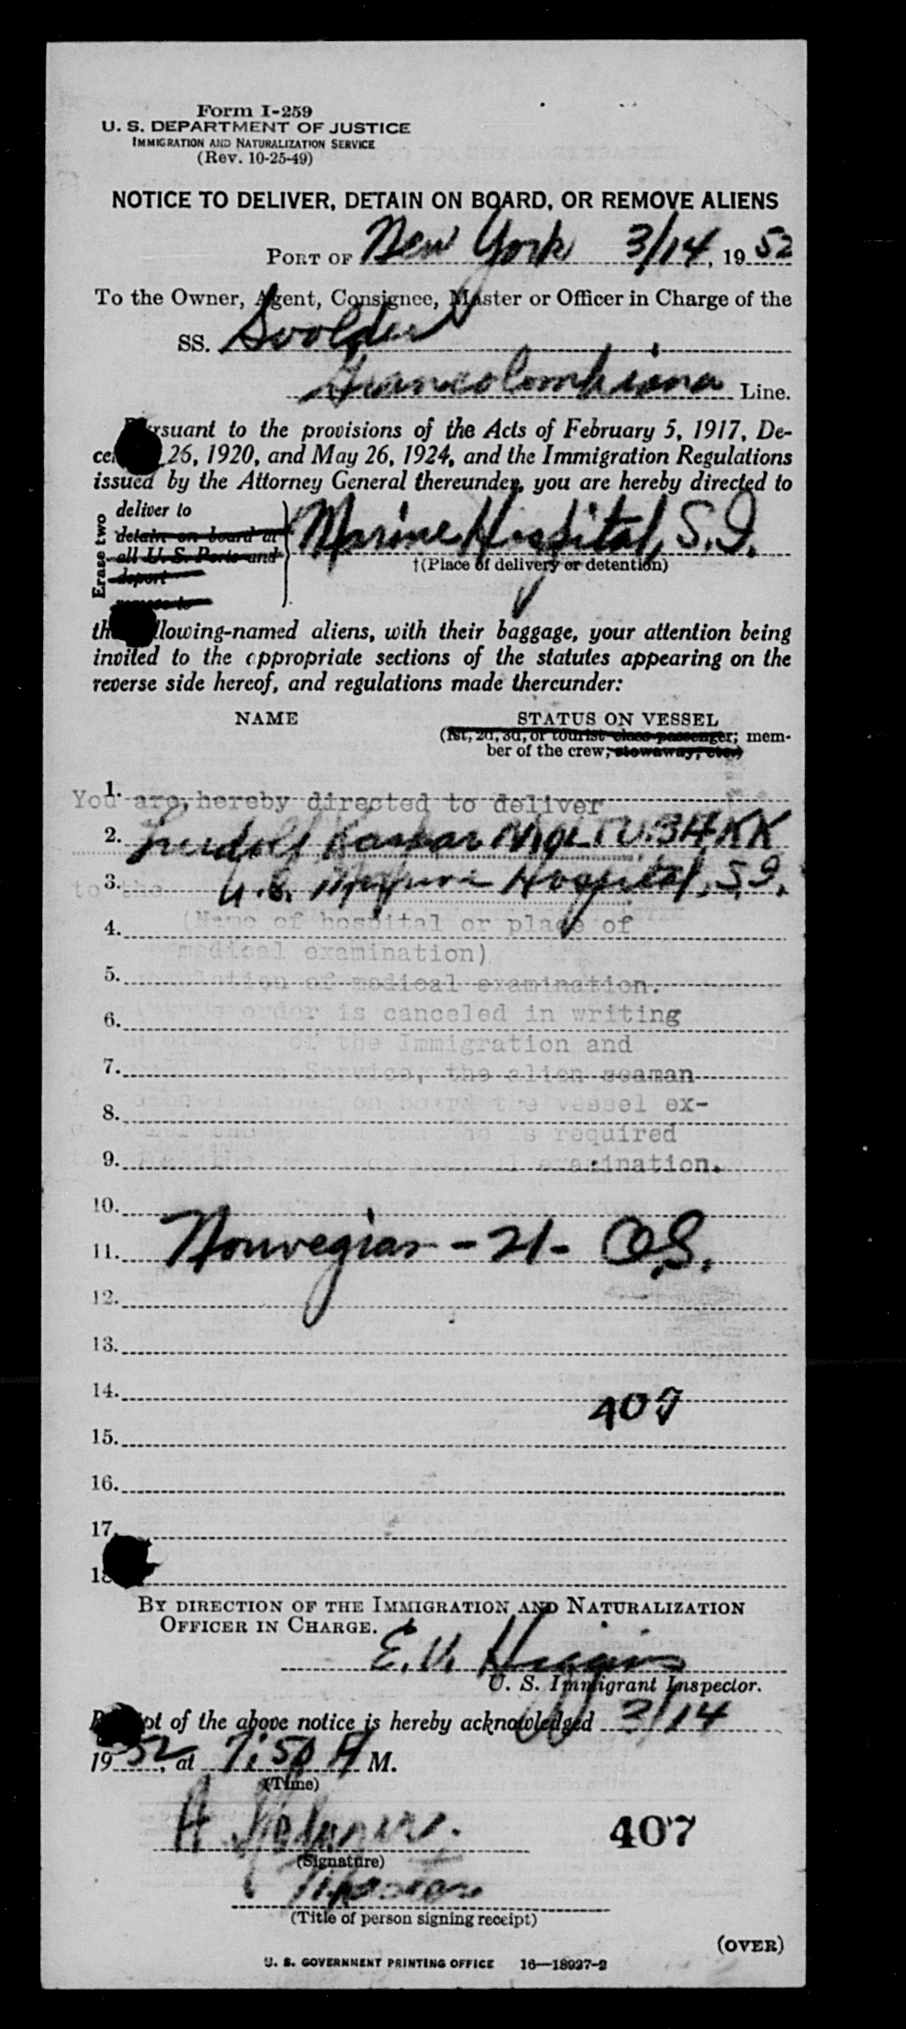 Form I-259
U. S. DEPARTMENT OF JUSTICE
IMMIGRATION AND NATURALIZATION SERVICE
(Rev. 10-25-49)
NOTICE TO DELIVER, DETAIN ON BOARD, OR REMOVE ALIENS
PORT OF New York 3/14, 1952
To the Owner, Agent, Consignee, Master or Officer in Charge of the
SS.
Grancolombiana Line.
Pursuant to the provisions of the Acts of February 5, 1917, De-
26, 1920, and May 26, 1924, and the Immigration Regulations
issued by the Attorney General thereunder, you are hereby directed to
Erase two
deliver to
detain on board at
all U. S. Ports and
deport
remove to
Marine Hospital, S.I.
†(Place of delivery or detention)
the following-named aliens, with their baggage, your attention being
invited to the appropriate sections of the statutes appearing on the
reverse side hereof, and regulations made thereunder:
NAME STATUS ON VESSEL
(1st, 2d, 3d, or tourist class passenger; mem-
ber of the crew; stowaway, etc.)
1.
You are hereby directed to deliver
2.
3. to the U.S. Marine Hospital, S.I.
4. (Name of hospital or place of
medical examination)
5. of medical examination.
6. order is canceled in writing
of the Immigration and
7. Service, the alien seaman
8. on board the vessel ex-
is required
9. examination.
10.
11. Norwegian - 21 - O.S.
12.
13.
14. 407
15.
16.
17.
18
BY DIRECTION OF THE IMMIGRATION AND NATURALIZATION
OFFICER IN CHARGE.
E. V. Higgins
U. S. Immigrant Inspector.
Receipt of the above notice is hereby acknowledged 3/14
1952, at 7:50 A M.
(Time)
(Signature)
407
Master
(Title of person signing receipt)
(OVER)
U. S. GOVERNMENT PRINTING OFFICE 16—18927-2